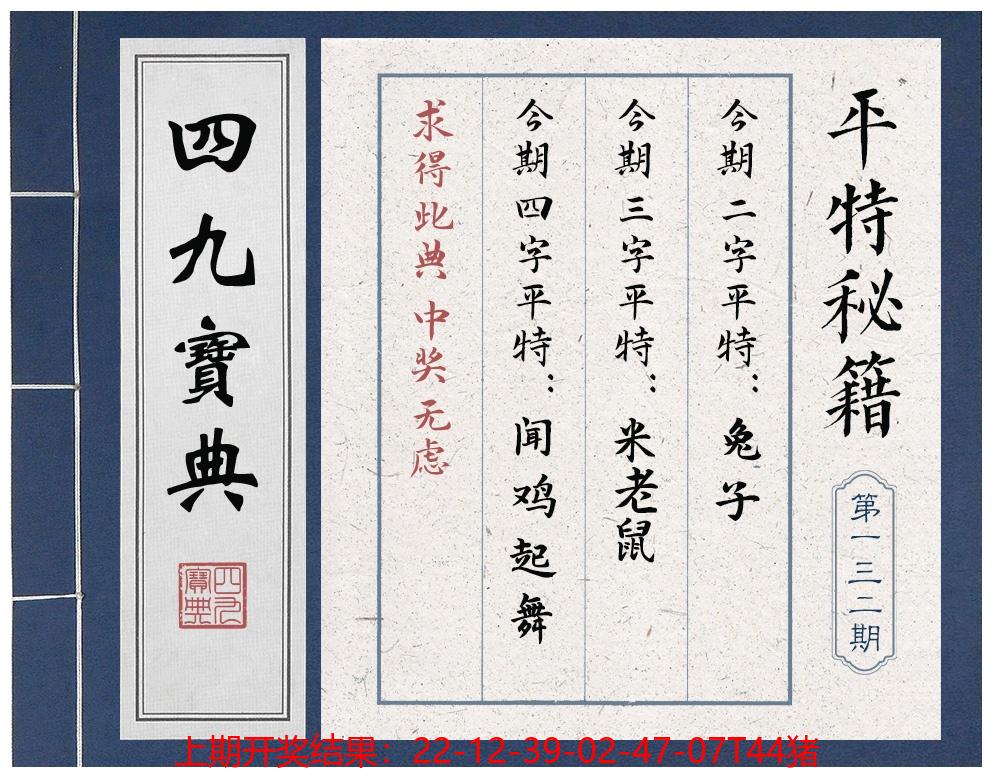 平特秘籍
第一三二期
今期二字平特：兔子
今期三字平特：米老鼠
今期四字平特：闻鸡起舞
求得此典 中奖无虑
四九寶典
四九寶典
上期开奖结果：22-12-39-02-47-07T44猪